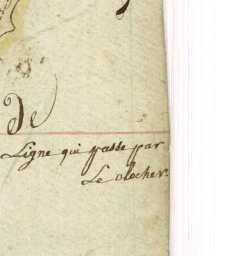 De
Ligne qui passe par
Le clocher.